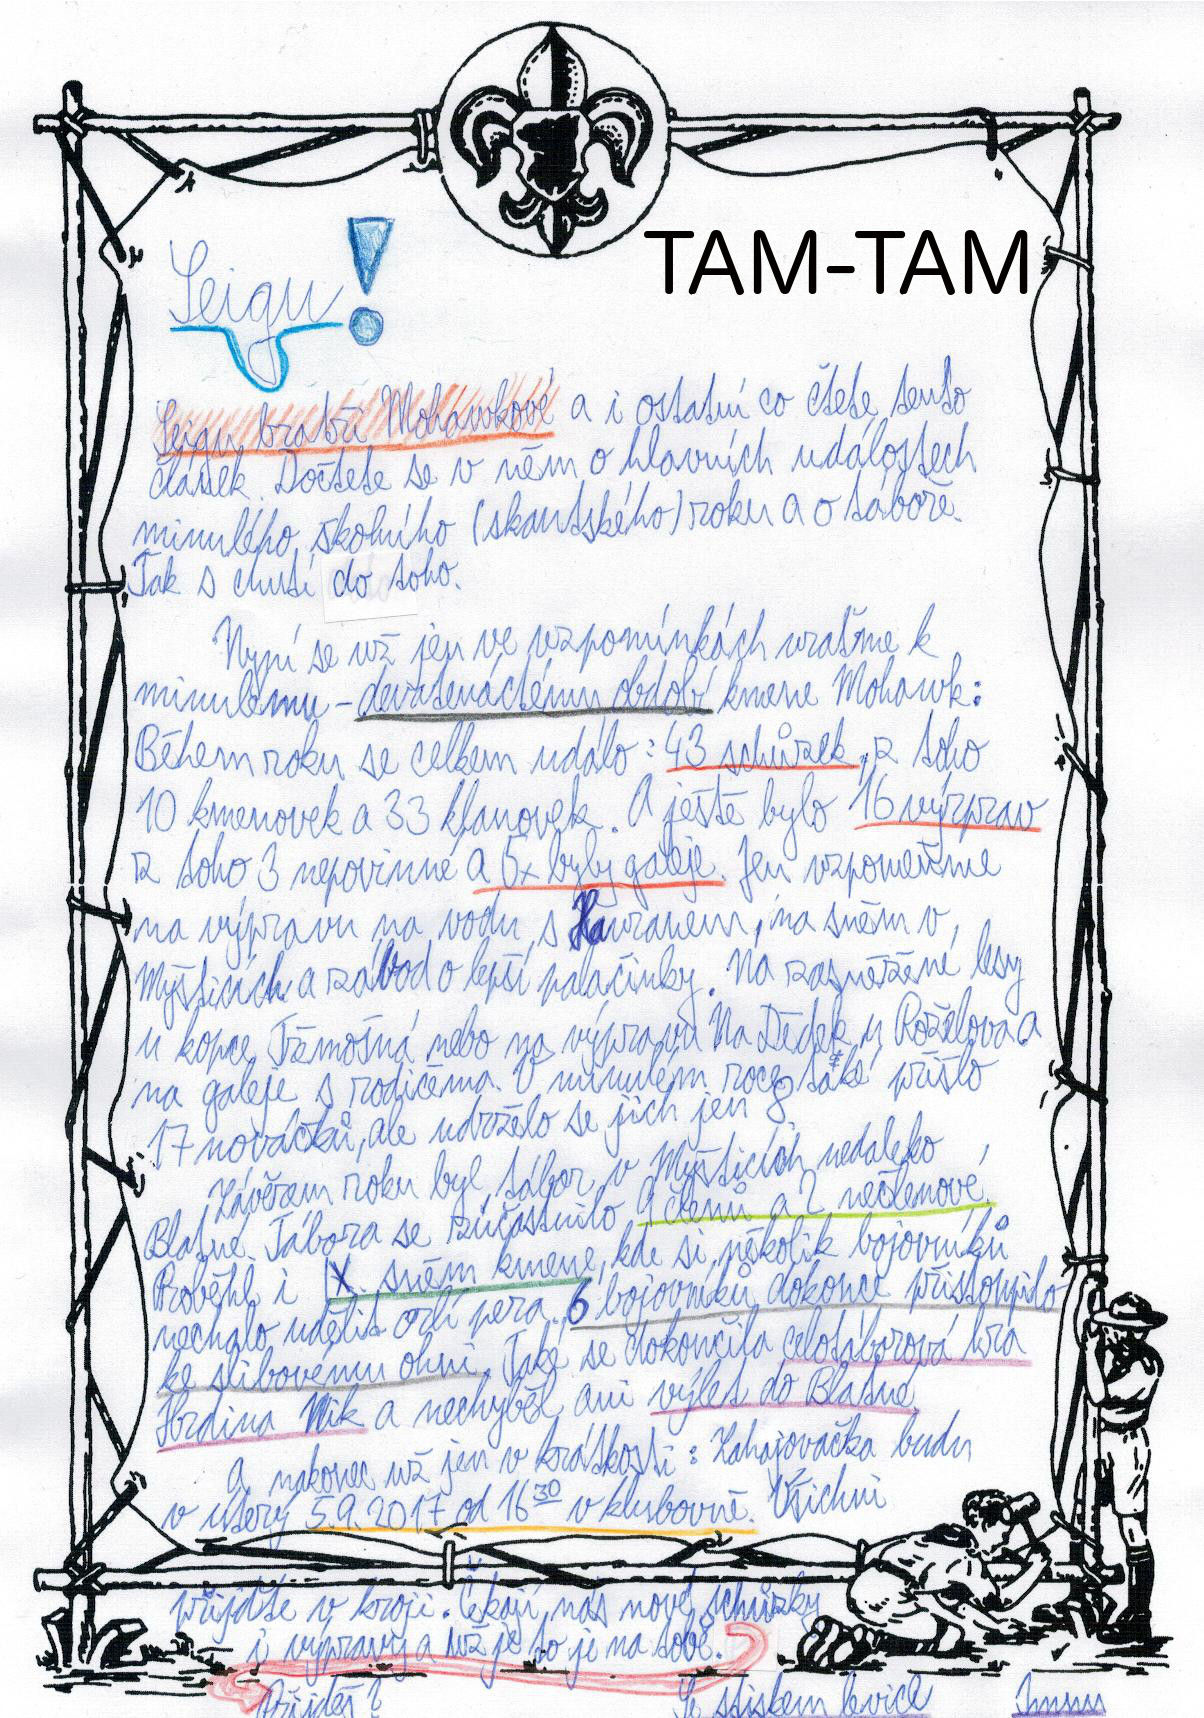 TAM-TAM
Seigu!
Seigu bratři Mohawkové a i ostatní co čtete tento
článek. Dočtete se v něm o hlavních událostech
minulého školního (skautského) roku a o táboře.
Tak s chutí do toho.
Nyní se už jen ve vzpomínkách vraťme k
minulému - devatenáctému období kmene Mohawk:
Během roku se celkem událo: 43 schůzek, z toho
10 kmenovek a 33 klanovek. A ještě bylo 16 výprav
z toho 3 nepovinné a 5x byly galeje. Jen vzpomeňme
na výpravu na vodu s Havranem, na sněm v
Myšticích a závod o lepší palačinky. Na zasněžené lesy
u kopce Třmošná nebo na výpravu Na Dědek u Roželova a
na galeje s rodičema. V minulém roce také přišlo
17 nováčků, ale udrželo se jich jen 8.
Závěrem roku byl tábor v Myšticích nedaleko
Blatné. Tábora se zúčastnilo 9 členů a 2 nečlenové.
Proběhl i IX. sněm kmene, kde si několik bojovníků
nechalo udělit orlí pera. 6 bojovníků dokonce přistoupilo
ke slibovému ohni. Také se dokončila celotáborová hra
Hrdina Nik a nechyběl ani výlet do Blatné.
A nakonec už jen v krátkosti: Zahajovačka budu
v úterý 5.9.2017 od 16³⁰ v klubovně. Všichni
přijďte v kroji. Čekají nás nové schůzky
i výpravy a už je to je na tobě.
Přijdeš?
Se stiskem levice